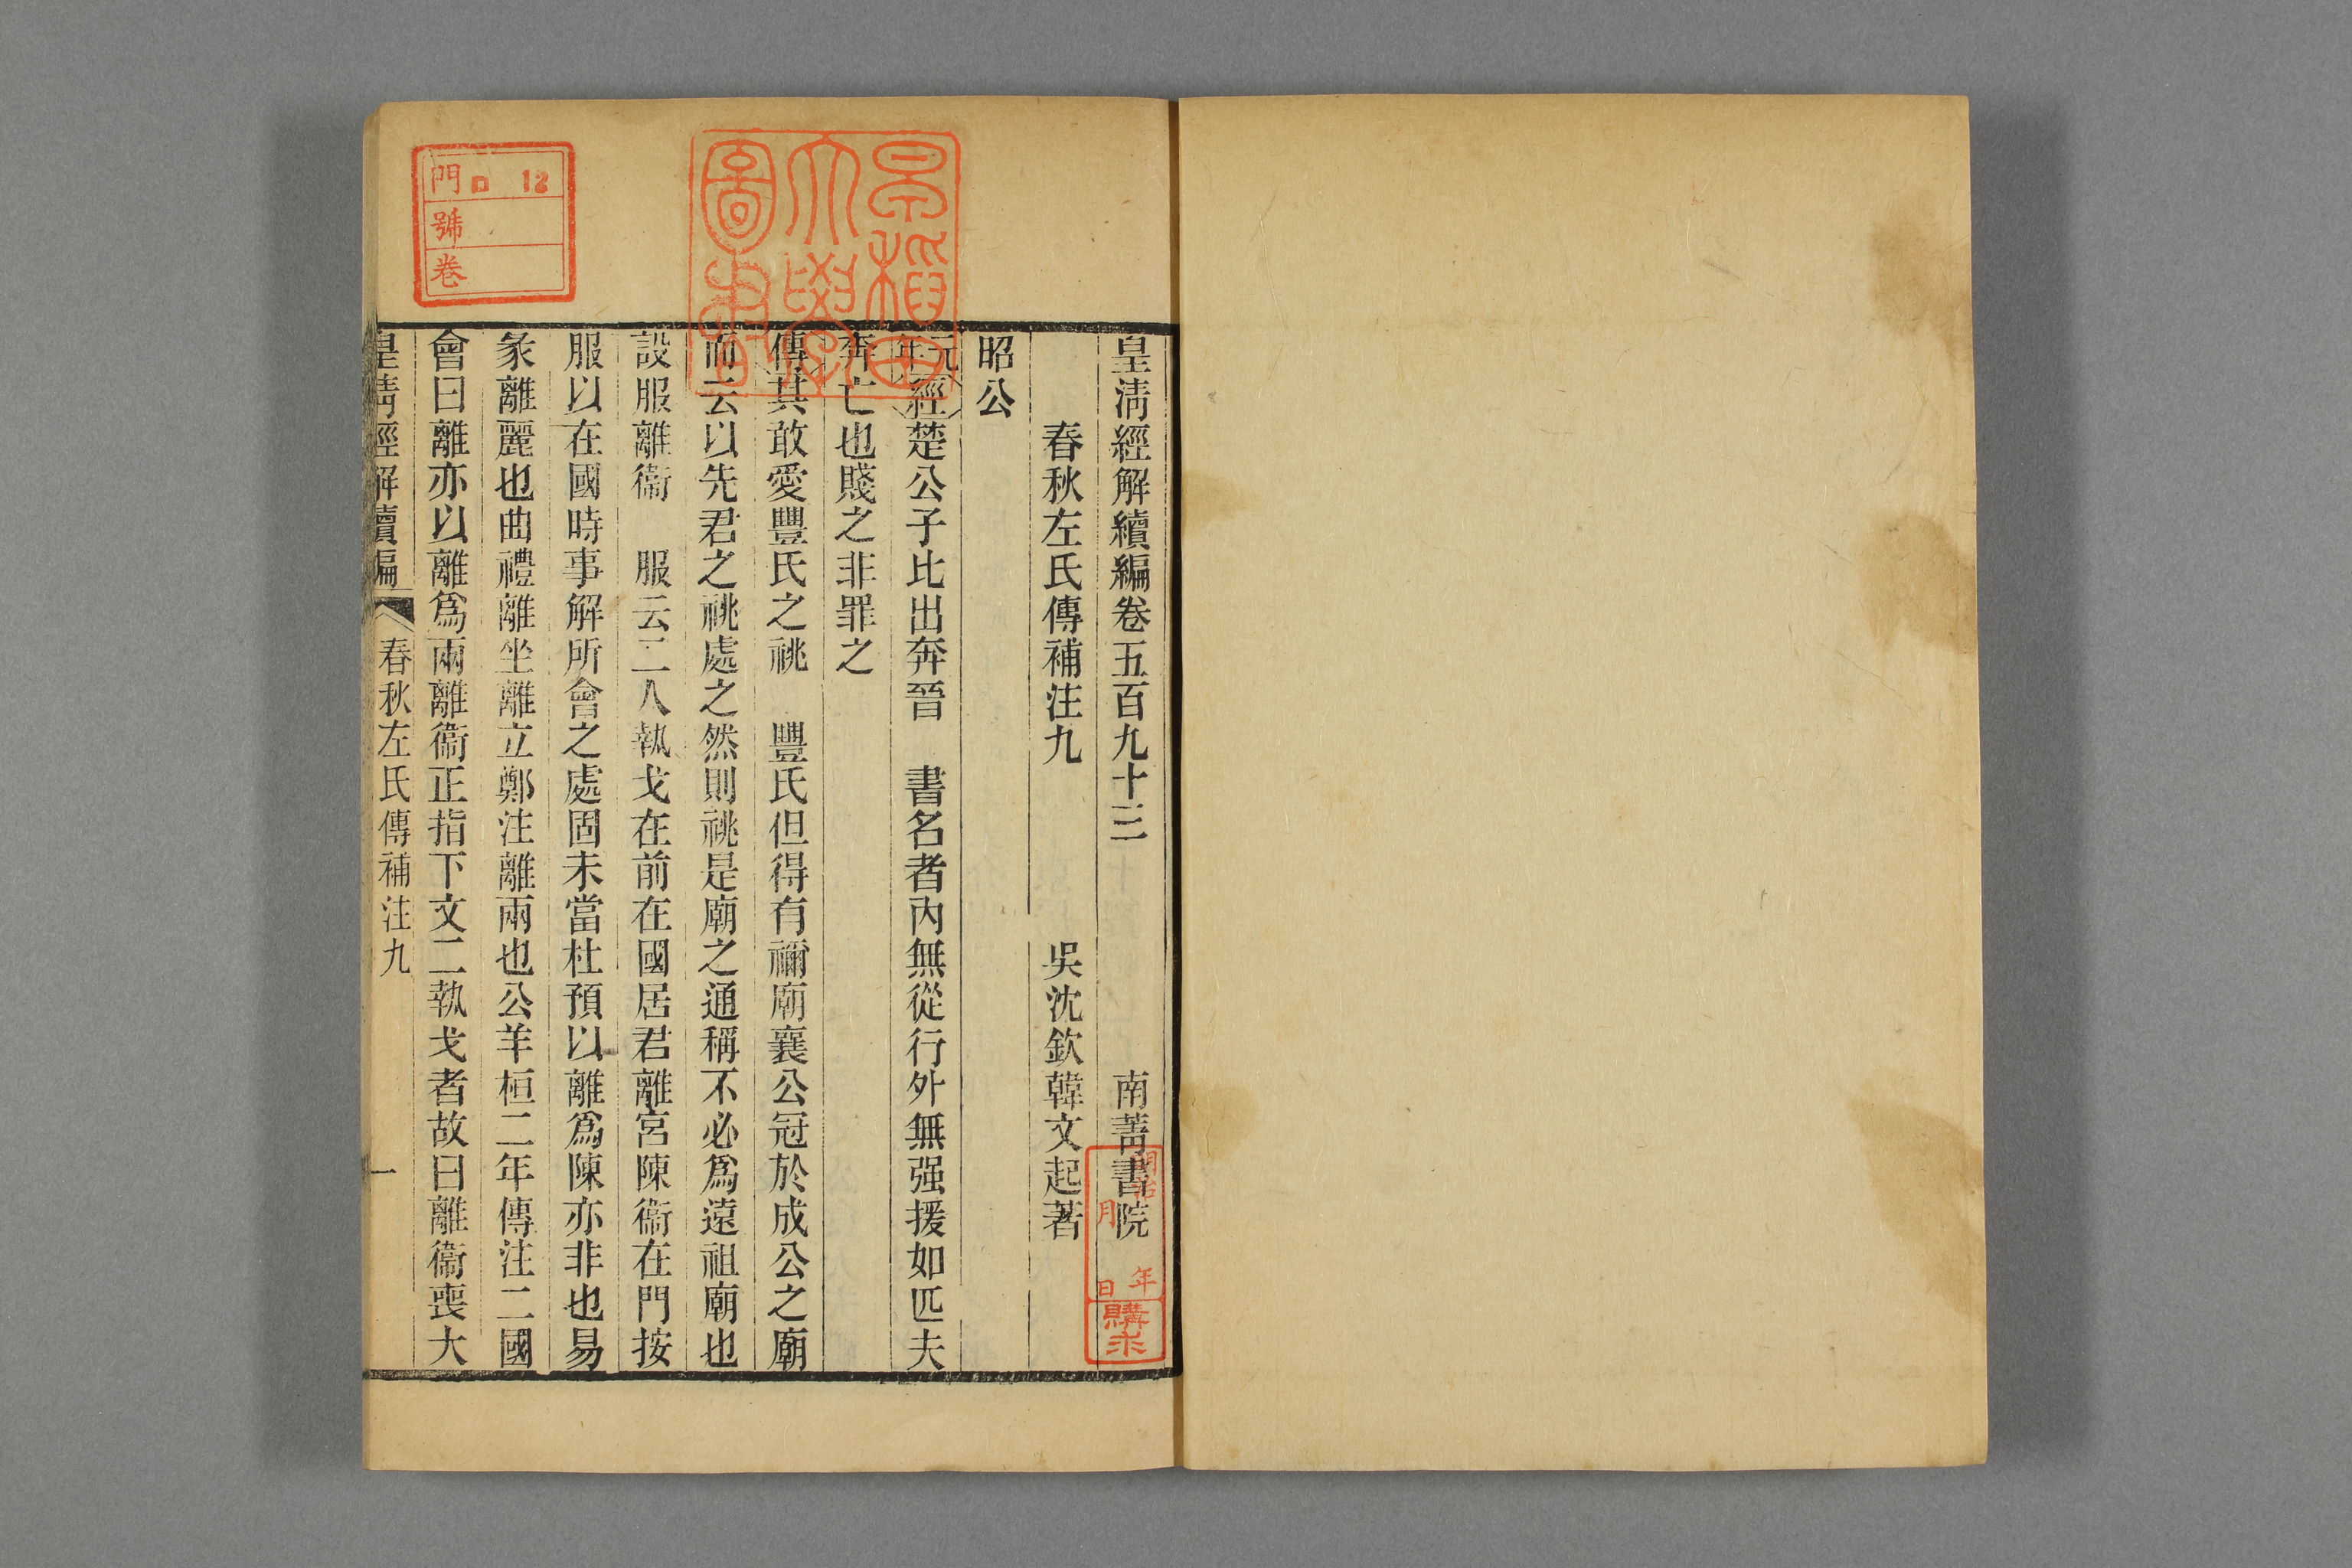 皇清經解續編卷五百九十三 南菁書院
春秋左氏傳補注九 吳沈欽韓文起著
昭公
元年經楚公子比出奔晉 書名者內無從行外無强援如匹夫
奔亡也賤之非罪之
傳其敢愛豐氏之祧 豐氏但得有禰廟襄公冠於成公之廟
而云以先君之祧處之然則祧是廟之通稱不必爲遠祖廟也
設服離衞 服云二人執戈在前在國居君離宮陳衞在門按
服以在國時事解所會之處固未當杜預以離爲陳亦非也易
彖離麗也曲禮離坐離立鄭注離兩也公羊桓二年傳注二國
會曰離亦以離爲兩離衞正指下文二執戈者故曰離衞喪大
皇清經解續編 春秋左氏傳補注九 一
早稻田大學圖書
門 ロ 12
號
卷
明治 年 月 日 購求